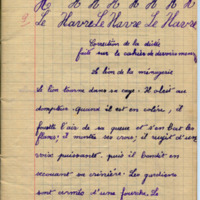 H H H H H H H H
Le Havre Le Havre Le Havre
Correction de la dictée
faite sur le cahier de devoirs mens
Le lion de la ménagerie
Le lion tourne dans sa cage. Il obéit au
dompteur. Quand il est en colère, il
fouette l'air de sa queue et s'en bat les
flancs; il montre ses crocs, il rugit d'une
voix puissante, puis il bondit en
secouant sa crinière. Les gardiens
sont armés d'une fourche. Le